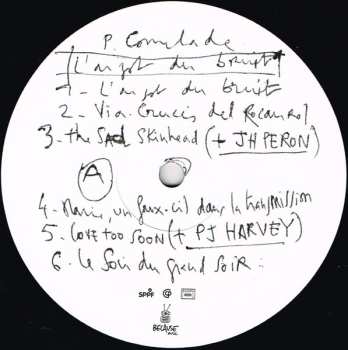 P. Comelade
L'argot du bruit
1- L'argot du bruit
2- Via Crucis del Rocanrol
3- The Sad Skinhead (+ JH PERON)
A
4- Mario, un faux-cil dans la transmission
5- Love too soon (+ PJ HARVEY)
6- Le Soir du grand Soir.
SPPF @
BECAUSE
MUSIC